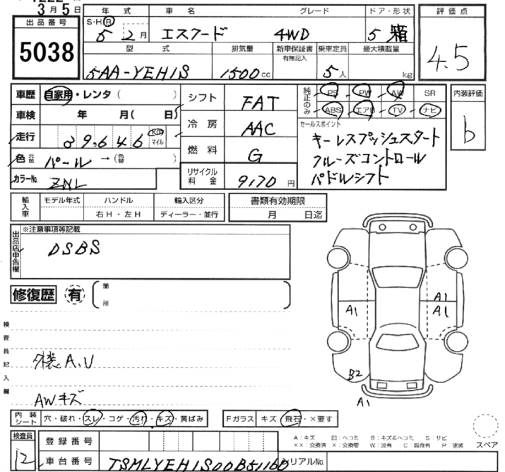 3月5日
出品番号
5038
年式 車名 グレード ドア・形状
S・H・R 5年2月 エスクード 4WD 5 箱
型式 排気量 新車保証書 有無記入 乗車定員 最大積載量
5AA-YEH1S 1500cc 5人 kg
評価点
4.5
車歴 自家用・レンタ( )
シフト FAT
純正のみ PS PW AW SR
ABS エアB TV ナビ
内装評価
b
車検 年 月( 日)
冷房 AAC
セールスポイント
キーレスプッシュスタート
クルーズコントロール
パドルシフト
走行 39,646 km マイル
燃料 G
色 元色 パール→(色 )
リサイクル料金 9,170円
カラーNo. ZNL
輸入車 モデル年式 ハンドル 輸入区分 書類有効期限
右H・左H ディーラー・並行 月 日迄
出品店申告欄 ※注意事項等記載
DSBS
修復歴 有 箇所
A1
A1
A1
B2
A1
検査員記入欄
外装A.U
AWキズ
内装シート 穴・破れ・スレ・コゲ・汚れ・キズ・黄ばみ Fガラス キズ・飛石・×要す
スペア
検査員
12
登録番号
A:キズ U:ヘコミ B:キズ&ヘコミ S:サビ
××:交換済 X:要交換 W:波有 C:腐食 P:塗装
車台番号 TSMLYEH1S00B511 シリアルNo.